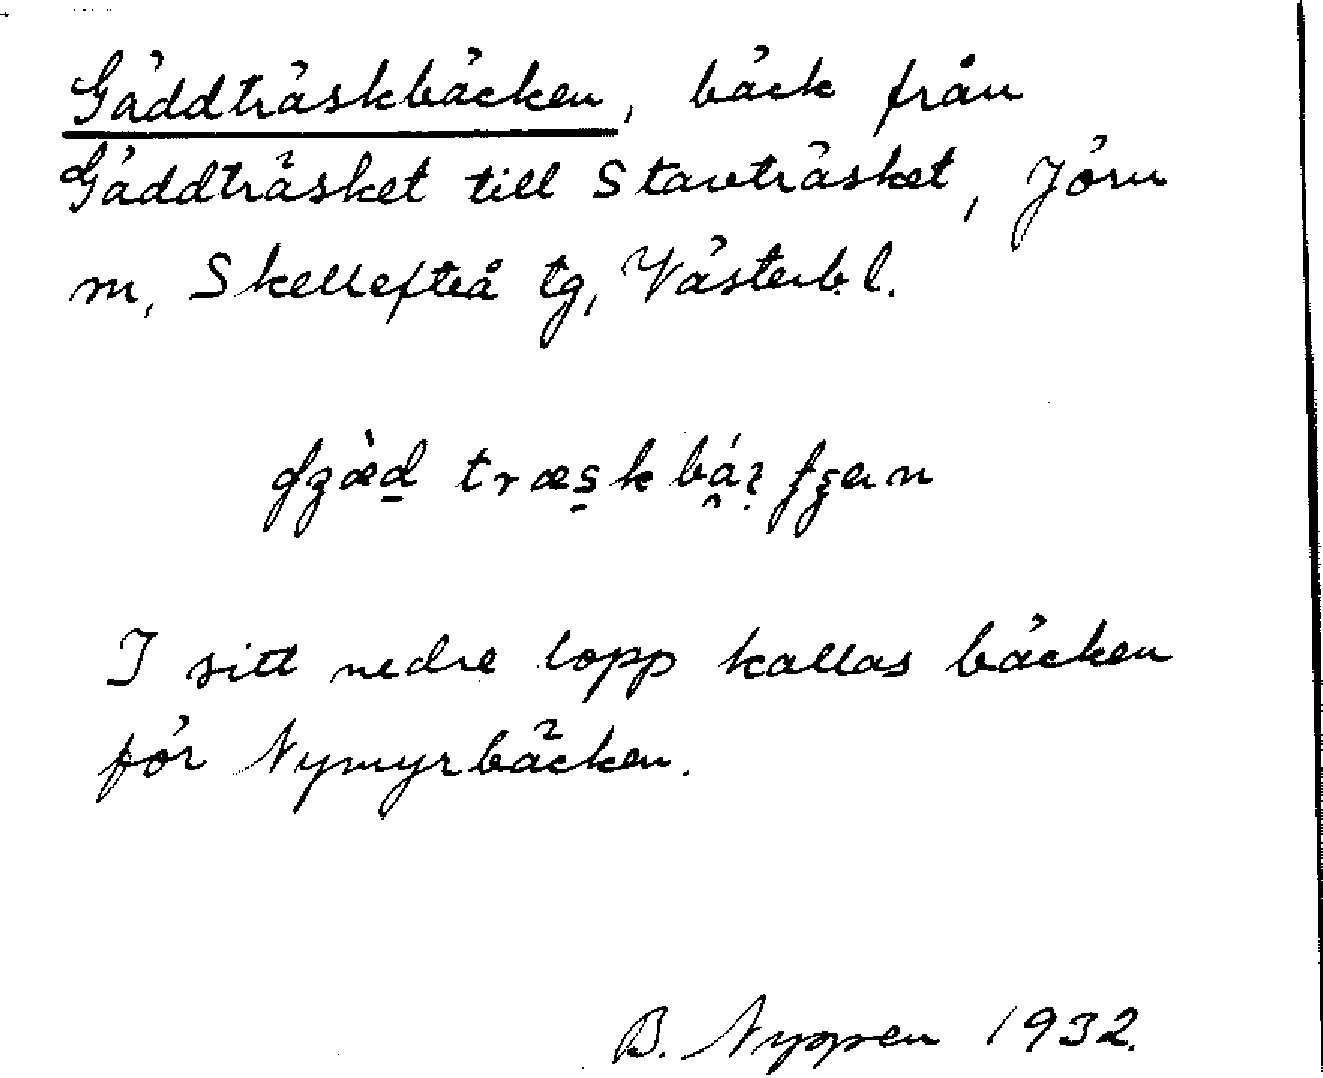 Gäddträskbäcken, bäck från
Gäddträsket till Stavträsket, Jörn
m, Skellefteå tg, Västerb. l.
I sitt nedre lopp kallas bäcken
för Nymyrbäcken.
B. Nygren 1932.